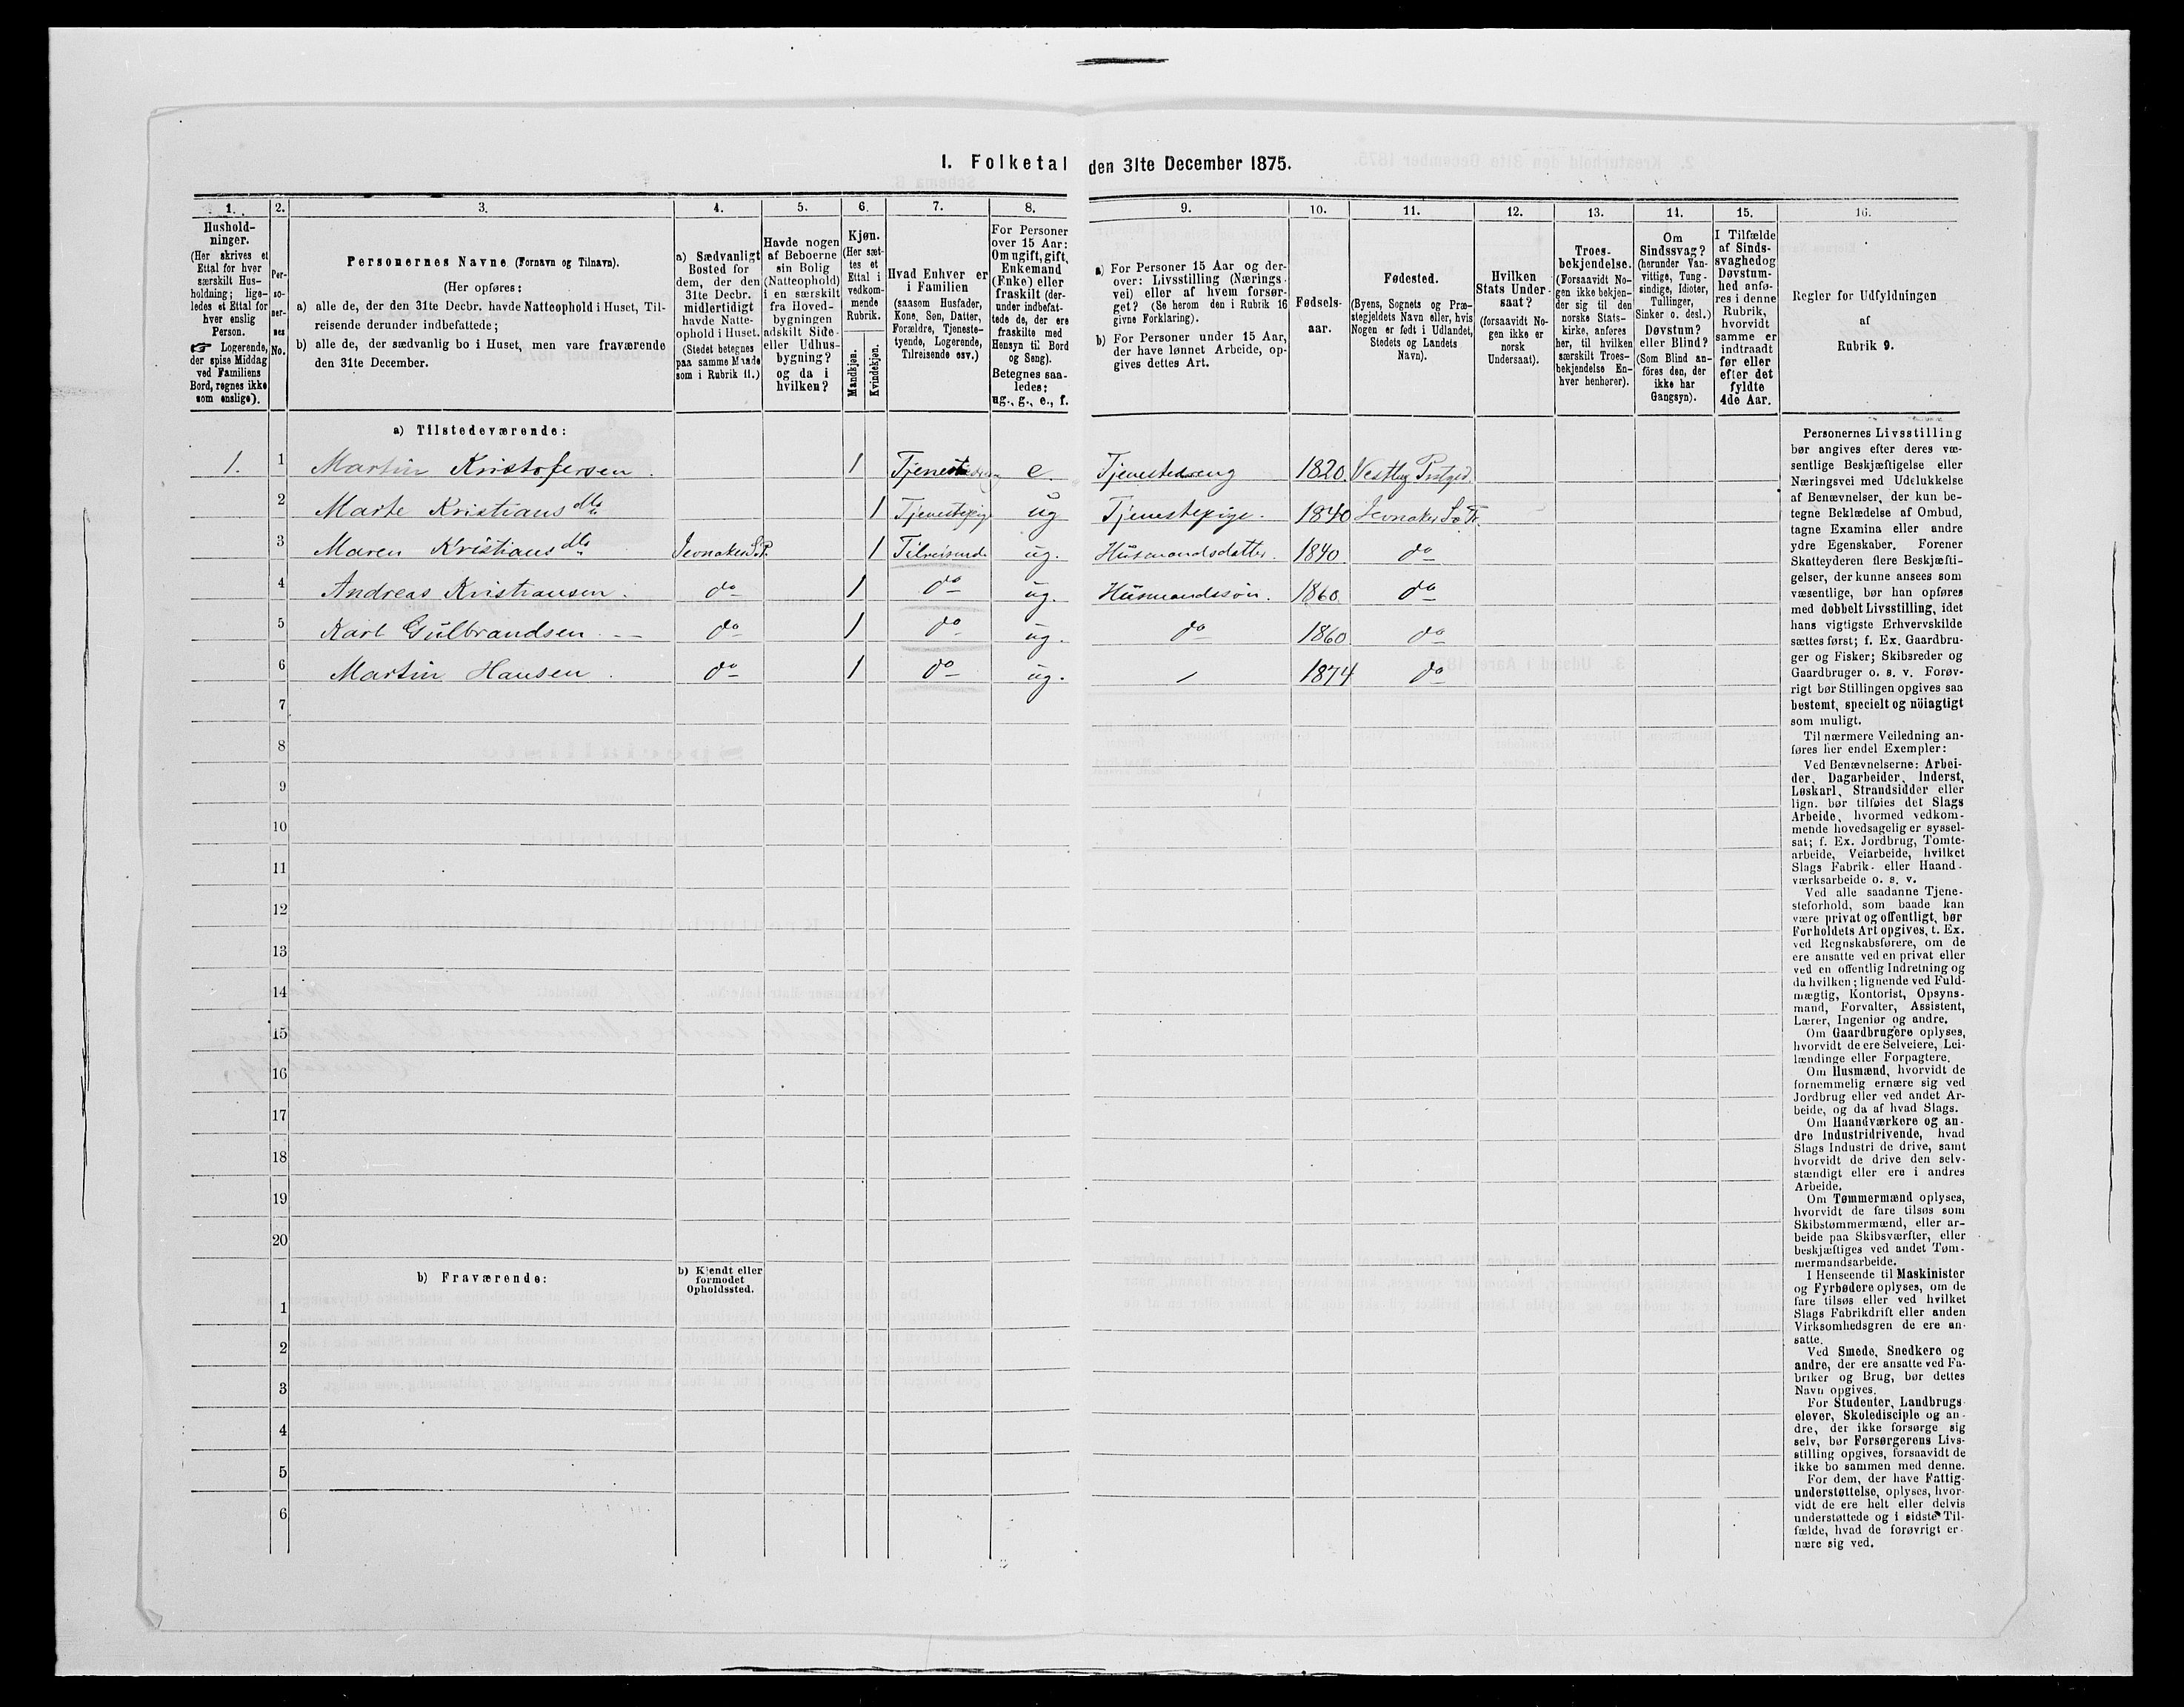 1. Folketal den 31te December 1875.
1. 2. 3. 4. 5. 6. 7. 8. 9. 10. 11. 12. 13. 14. 15. 16.
Hushold-
ninger.
(Her skrives et
Ettal for hver
særskilt Hus-
holdning; lige-
ledes et Ettal for
hver enslig
Person.
☞ Logerende,
der spise Middag
ved Familiens
Bord, regnes ikke
som enslige).
Per-
so-
ner-
nes
No.
Personernes Navne (Fornavn og Tilnavn).
(Her opføres:
a) alle de, der den 31te Decbr. havde Natteophold i Huset, Til-
reisende derunder indbefattede;
b) alle de, der sædvanlig bo i Huset, men vare fraværende
den 31te December.
a) Sædvanligt
Bosted for
dem, der den
31te Decbr.
midlertidigt
havde Natte-
ophold i Huset.
(Stedet betegnes
paa samme Maade
som i Rubrik 11.)
Havde nogen
af Beboerne
sin Bolig
(Natteophold)
i en særskilt
fra Hoved-
bygningen
adskilt Side-
eller Udhus-
bygning?
og da i
hvilken?
Kjøn.
(Her sæt-
tes et
Ettal i
vedkom-
mende
Rubrik.
Mandkjøn.
Kvindekjøn.
Hvad Enhver er
i Familien
(saasom Husfader,
Kone, Søn, Datter,
Forældre, Tjeneste-
tyende, Logerende,
Tilreisende osv.)
For Personer
over 15 Aar:
Om ugift, gift,
Enkemand
(Enke) eller
fraskilt (der-
under indbefat-
tede de, der ere
fraskilte med
Hensyn til Bord
og Seng).
Betegnes saa-
ledes:
ug., g., e., f.
a) For Personer 15 Aar og der-
over: Livsstilling (Nærings-
vei) eller af hvem forsør-
get? (Se herom den i Rubrik 16
givne Forklaring).
b) For Personer under 15 Aar,
der have lønnet Arbeide, op-
gives dettes Art.
Fødsels-
aar.
Fødested.
(Byens, Sognets og Præ-
stegjeldets Navn eller, hvis
Nogen er født i Udlandet,
Stedets og Landets
Navn).
Hvilken
Stats Under-
saat?
(forsaavidt No-
gen ikke er
norsk
Undersaat).
Troes-
bekjendelse.
(Forsaavidt No-
gen ikke bekjen-
der sig til den
norske Stats-
kirke, anføres
her, til hvilken
særskilt Troes-
bekjendelse En-
hver henhører).
Om
Sindssvag?
(herunder Van-
vittige, Tung-
sindige, Idioter,
Tullinger,
Sinker o. desl.)
Døvstum?
eller Blind?
(Som Blind an-
föres den, der
ikke har
Gangsyn).
I Tilfælde
af Sinds-
svaghed og
Døvstum-
hed anfø-
res i denne
Rubrik,
hvorvidt
samme er
indtraadt
før eller
efter det
fyldte
4de Aar.
Regler for Udfyldningen
af
Rubrik 9.
a) Tilstedeværende:
1. 1 Martin Kristofersen. 1 e. Tjenestedreng 1820
2 Marte Kristiansdtr 1 Tjenestepige ug Tjenestepige. 1840
3 Maren Kristiansdtr 1 Tilreisende ug. Husmandsdatter. 1840 do
4 Andreas Kristiansen. do 1 do ug. Husmandssøn. 1860 do
5 Karl Gulbrandsen. do 1 do ug. do 1860 do
6 Martin Hansen. do 1 do ug. 1874 do
7
8
9
10
11
12
13
14
15
16
17
18
19
20
b) Fraværende:
b) Kjendt eller
formodet
Opholdssted.
1
2
3
4
5
6
Personernes Livsstilling
bør angives efter deres væ-
sentlige Beskjæftigelse eller
Næringsvei med Udelukkelse
af Benævnelser, der kun be-
tegne Beklædelse af Ombud,
tagne Examina eller andre
ydre Egenskaber. Forener
Skatteyderen flere Beskjæfti-
gelser, der kunne ansees som
væsentlige, bør han opføres
med dobbelt Livsstilling, idet
hans vigtigste Erhvervskilde
sættes først; f. Ex. Gaardbru-
ger og Fisker; Skibsreder og
Gaardbruger o. s. v. Forøv-
rigt bør Stillingen opgives saa
bestemt, specielt og nöiagtigt
som muligt.
Til nærmere Veiledning an-
føres her endel Exempler:
Ved Benævnelserne: Arbei-
der, Dagarbeider, Inderst,
Løskarl, Strandsidder eller
lign. bør tilføies det Slags
Arbeide, hvormed vedkom-
mende hovedsagelig er syssel-
sat; f. Ex. Jordbrug, Tomte-
arbeide, Veiarbeide, hvilket
Slags Fabrik- eller Haand-
værksarbeide o. s. v.
Ved alle saadanne Tjene-
steforhold, som baade kan
være privat og offentligt, bør
Forholdets Art opgives, t. Ex.
ved Regnskabsførere, om de
ere ansatte ved en privat eller
ved en offentlig Indretning og
da hvilken; lignende ved Fuld-
mægtig, Kontorist, Opsyns-
mand, Forvalter, Assistent,
Lærer, Ingeniør og andre.
Om Gaardbrugere oplyses,
hvorvidt de ere Selveiere, Lei-
lændinge eller Forpagtere.
Om Husmænd, hvorvidt de
fornemmelig ernære sig ved
Jordbrug eller ved andet Ar-
beide, og da af hvad Slags.
Om Haandværkere og an-
dre Industridrivende, hvad
Slags Industri de drive, samt
hvorvidt de drive den selv-
stændigt eller ere i andres
Arbeide.
Om Tømmermænd oplyses,
hvorvidt de fare tilsøs som
Skibstømmermænd, eller ar-
beide paa Skibsværfter, eller
beskjæftiges ved andet Tøm-
mermandsarbeide.
I Henseende til Maskinister
og Fyrbødere oplyses, om de
fare tilsøs eller ved hvilket
Slags Fabrikdrift eller anden
Virksomhedsgren de ere an-
satte.
Ved Smede, Snedkere og
andre, der ere ansatte ved Fa-
briker og Brug, bør dettes
Navn opgives.
For Studenter, Landbrugs-
elever, Skoledisciple og an-
dre, der ikke forsørge sig
selv, bør Forsørgerens Livs-
stilling opgives, forsaavidt de
ikke bo sammen med denne.
For dem, der have Fattig-
understøttelse, oplyses, hvor-
vidt de ere helt eller delvis
understøttede og i sidste Til-
fælde, hvad de forøvrigt er-
nære sig ved.